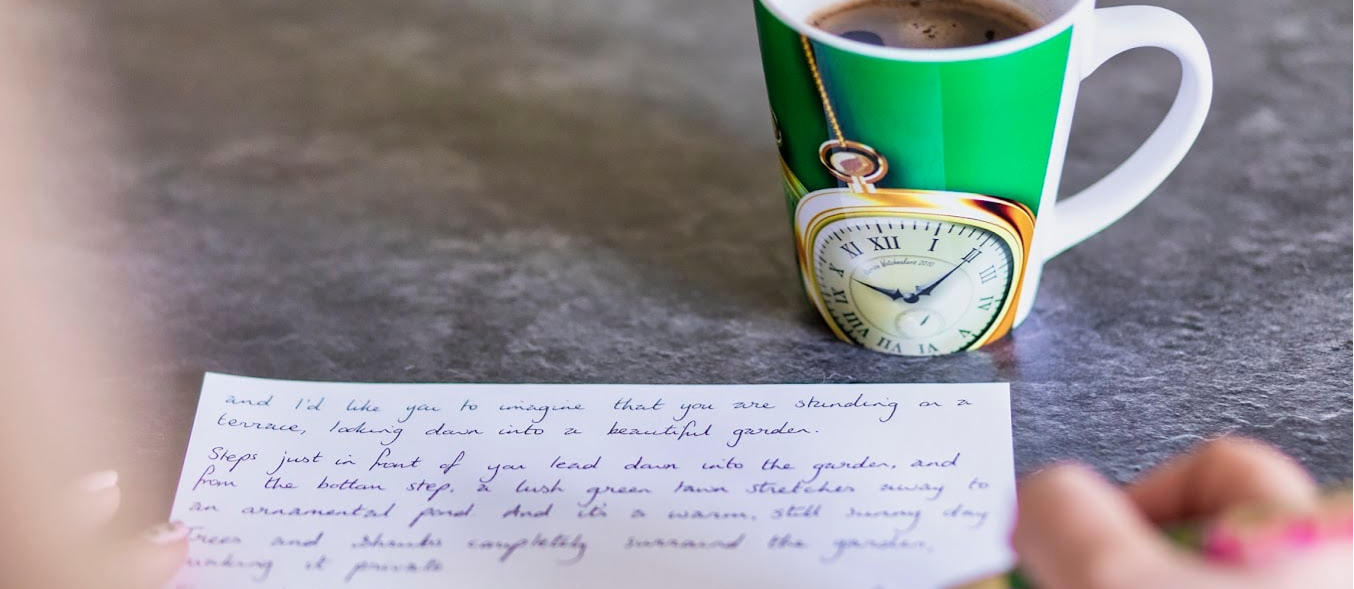 XI XII I II III IV V VI VII VIII IX X
2010
and I'd like you to imagine that you are standing on a
terrace, looking down into a beautiful garden.
Steps just in front of you lead down into the garden, and
from the bottom step, a lush green lawn stretches away to
an ornamental pond And it's a warm, still sunny day
Trees and shrubs completely surround the garden,
making it private